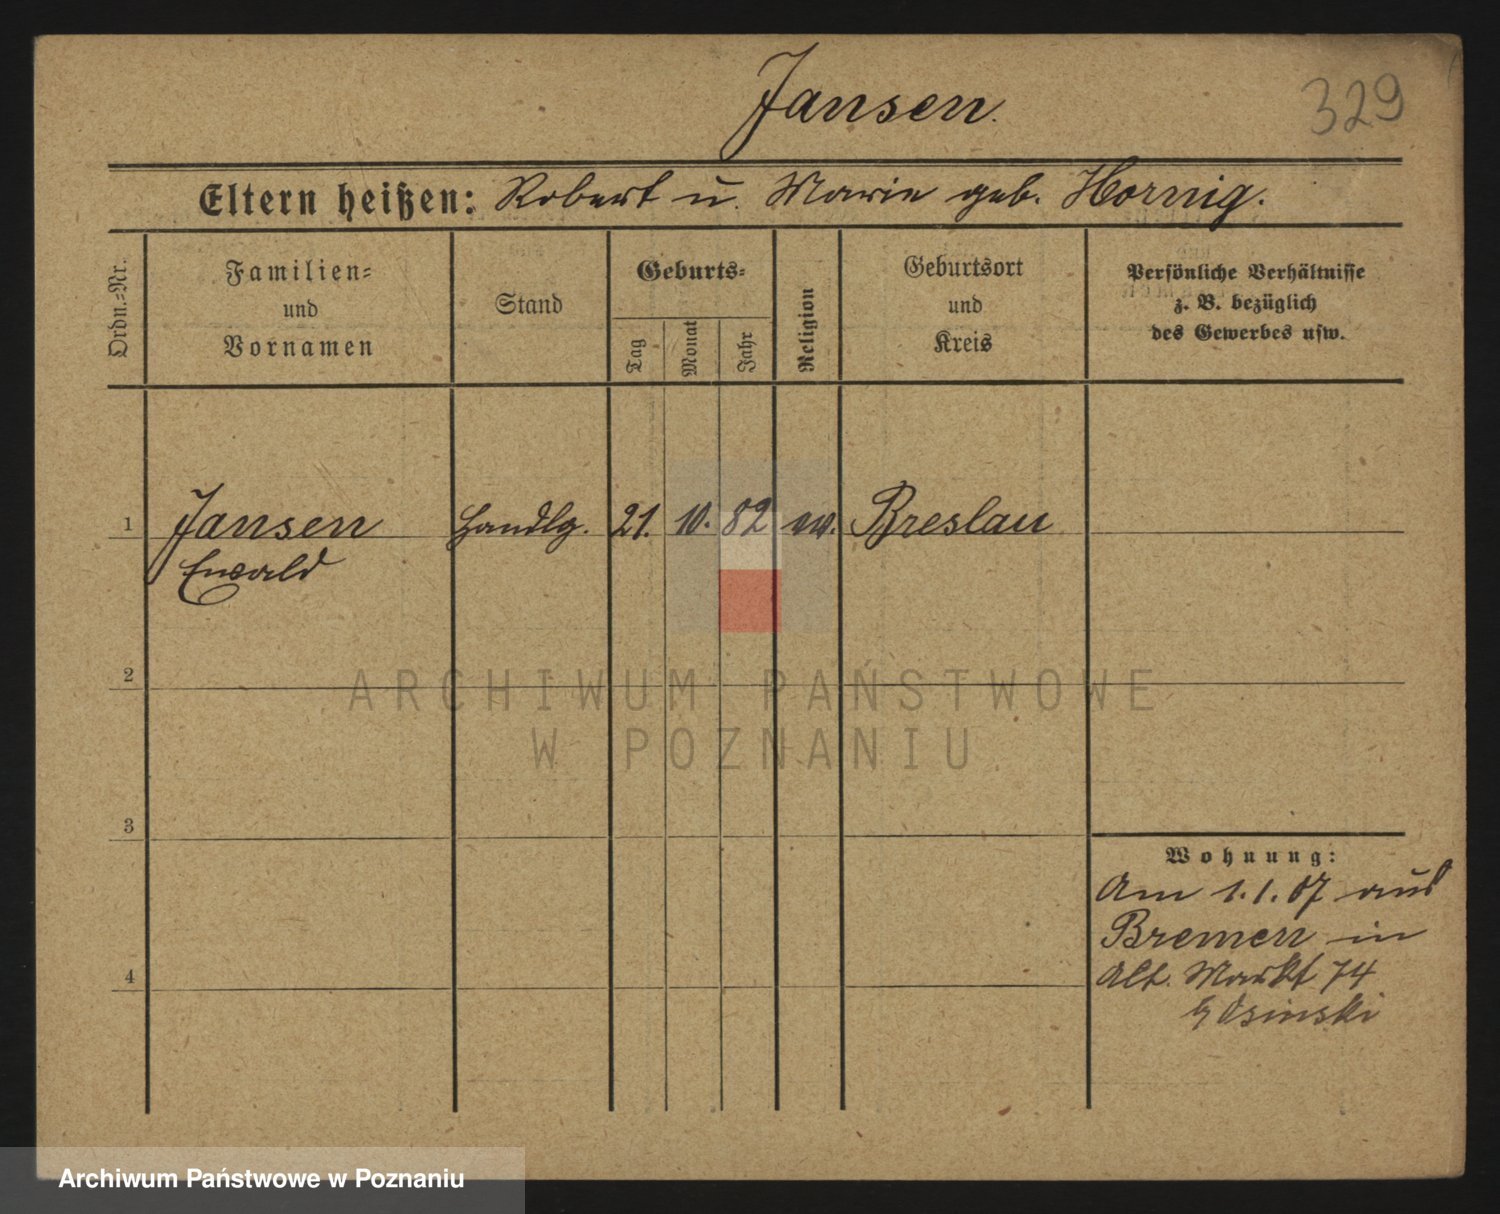 Jansen.
329
Eltern heißen: Robert u. Marie geb. Hornig.
Ordn.=Nr.
Familien=
und
Vornamen
Stand
Geburts=
Tag
Monat
Jahr
Religion
Geburtsort
und
Kreis
Persönliche Verhältnisse
z. B. bezüglich
des Gewerbes usw.
1 Jansen Handlg. 21. 10. 82 ev. Breslau
Ewald
2
3
4
Wohnung:
Am 1.1.07 aus
Bremen in
Alt. Markt 74
Osinski
ARCHIWUM PAŃSTWOWE
W POZNANIU
Archiwum Państwowe w Poznaniu